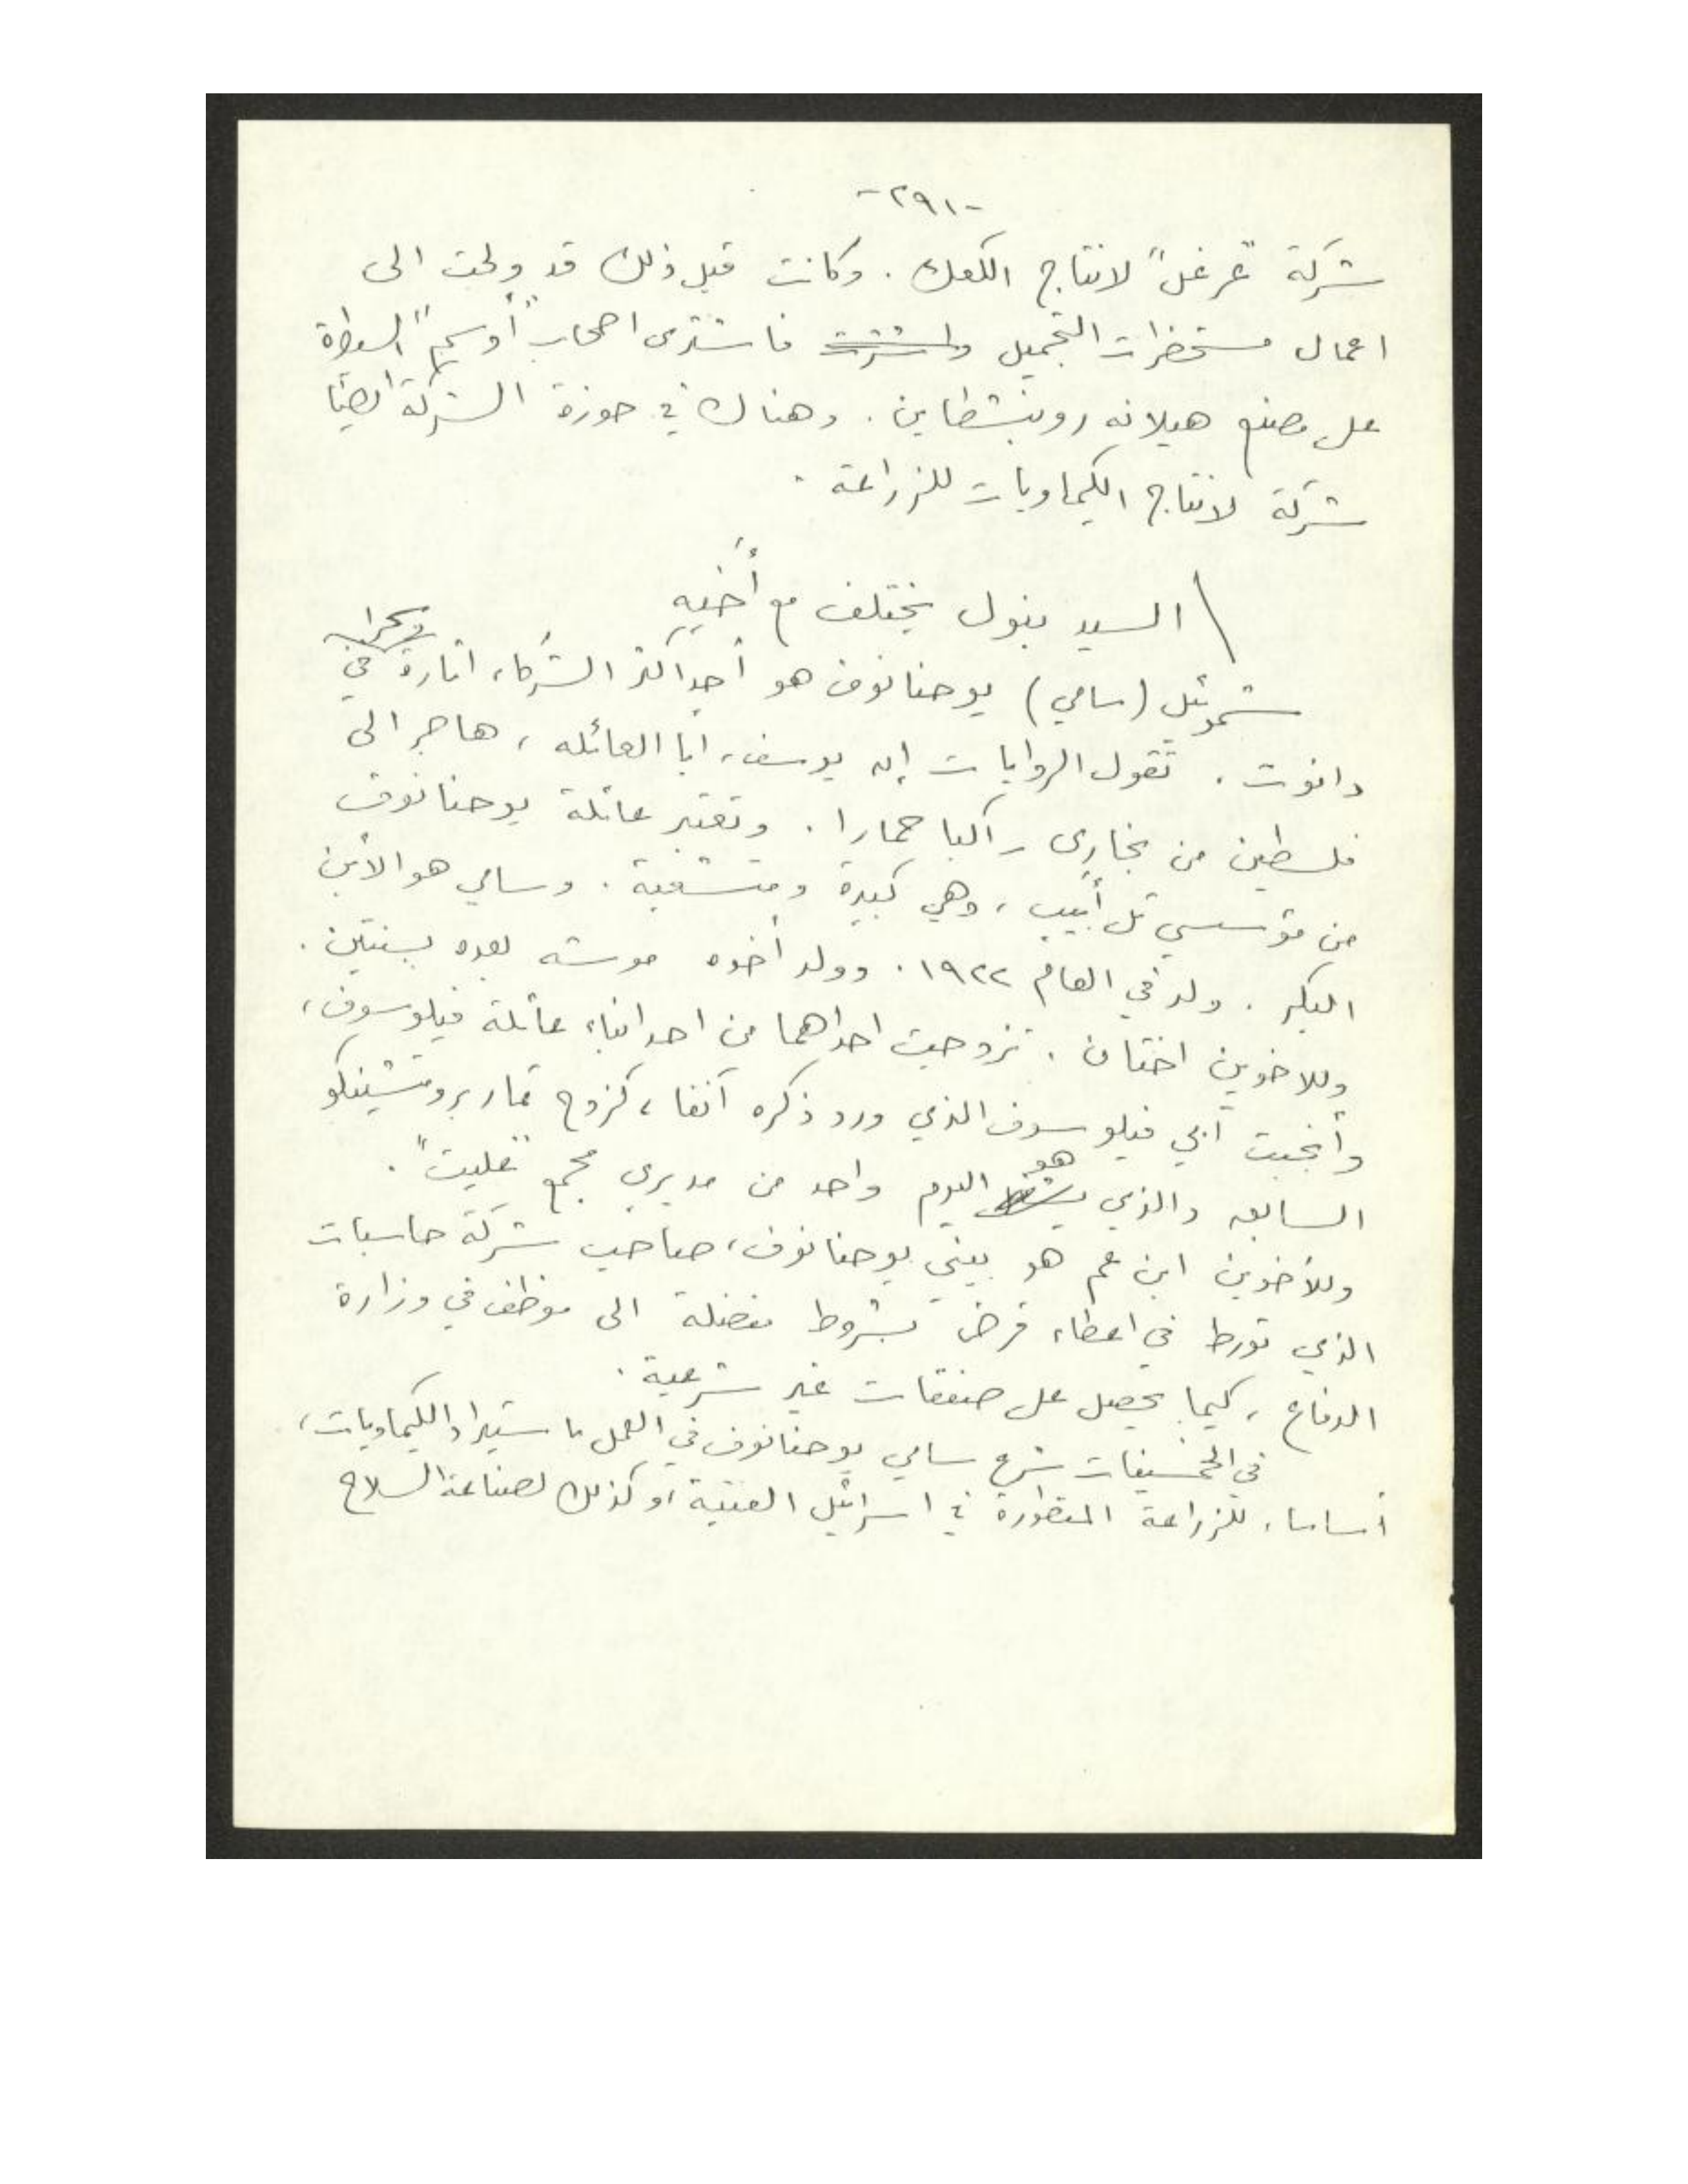 -٢٩١-
شركة "عرغل" لانتاج الكعك . وكانت قبل ذلك قد ولجت الى
اعمال مستحضرات التجميل واشترت فاشترى اصحاب "أوسم" السيطرة
على مصنع هيلانه روبنشطاين . وهناك في حوزة الشركة ايضا
شركة لانتاج الكيماويات للزراعة .
السيد بنول يختلف مع أخيه
شموئل (سامي) يوحنانوف هو أحد اكثر الشركاء اثارة في
دانوت . تقول الروايات إن يوسف، ابا العائله ، هاجر الى
فلسطين من بخارى راكبا حمارا . وتعتبر عائلة يوحنانوف
من مؤسسي تل أبيب ، وهي كبيرة ومتشعبة . وسامي هو الأبن
البكر . ولد في العام ١٩٢٢ . وولد أخوه موشه بعده بسنتين .
وللاخوين اختان . تزوجت احداهما من احد ابناء عائلة فيلوسوف ،
وأنجبت آبي فيلوسوف الذي ورد ذكره آنفا ، كزوج تمار بروتشينكو
السابق والذي هو اليوم واحد من مديري مجمع "عليت" .
وللأخوين ابن عم هو بيني يوحنانوف ، صاحب شركة حاسبات
الذي تورط في اعطاء قرض بشروط مفضلة الى موظف في وزارة
الدفاع ، كيما يحصل على صفقات غير شرعية .
في الخمسينات شرع سامي يوحنانوف في العمل باستيراد الكيماويات ،
أساسا، للزراعة المتطورة في اسرائيل الفتية وكذلك لصناعة السلاح